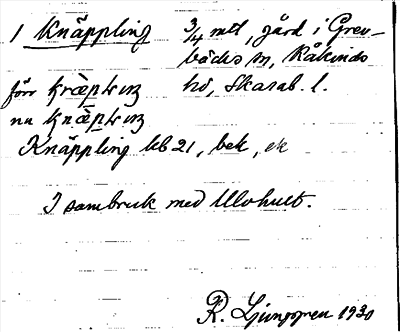 1 Knäppling 3/4 mtl, gård i Grev-
bäcks sn, Kåkinds
förr knæ̀plıŋ hd, Skarab. l.
nu knæ̀plıŋ
Knäppling kb 21, bek, ek
I sambruk med Ulvhult.
R. Ljunggren 1930